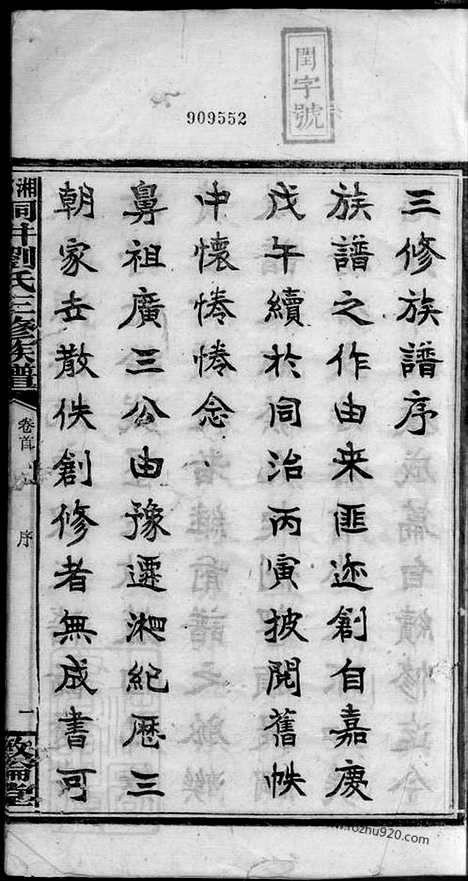 閏字號
909552
三修族譜序
族譜之作由来匪迩創自嘉慶
戊午續於同治丙寅披閱舊帙
中懷惓惓念
鼻祖廣三公由豫遷湘紀歷三
朝家乗散佚創修者無成書可
湘同井劉氏三修族譜
卷首
序
一
敦倫堂
www.rozhu920.com